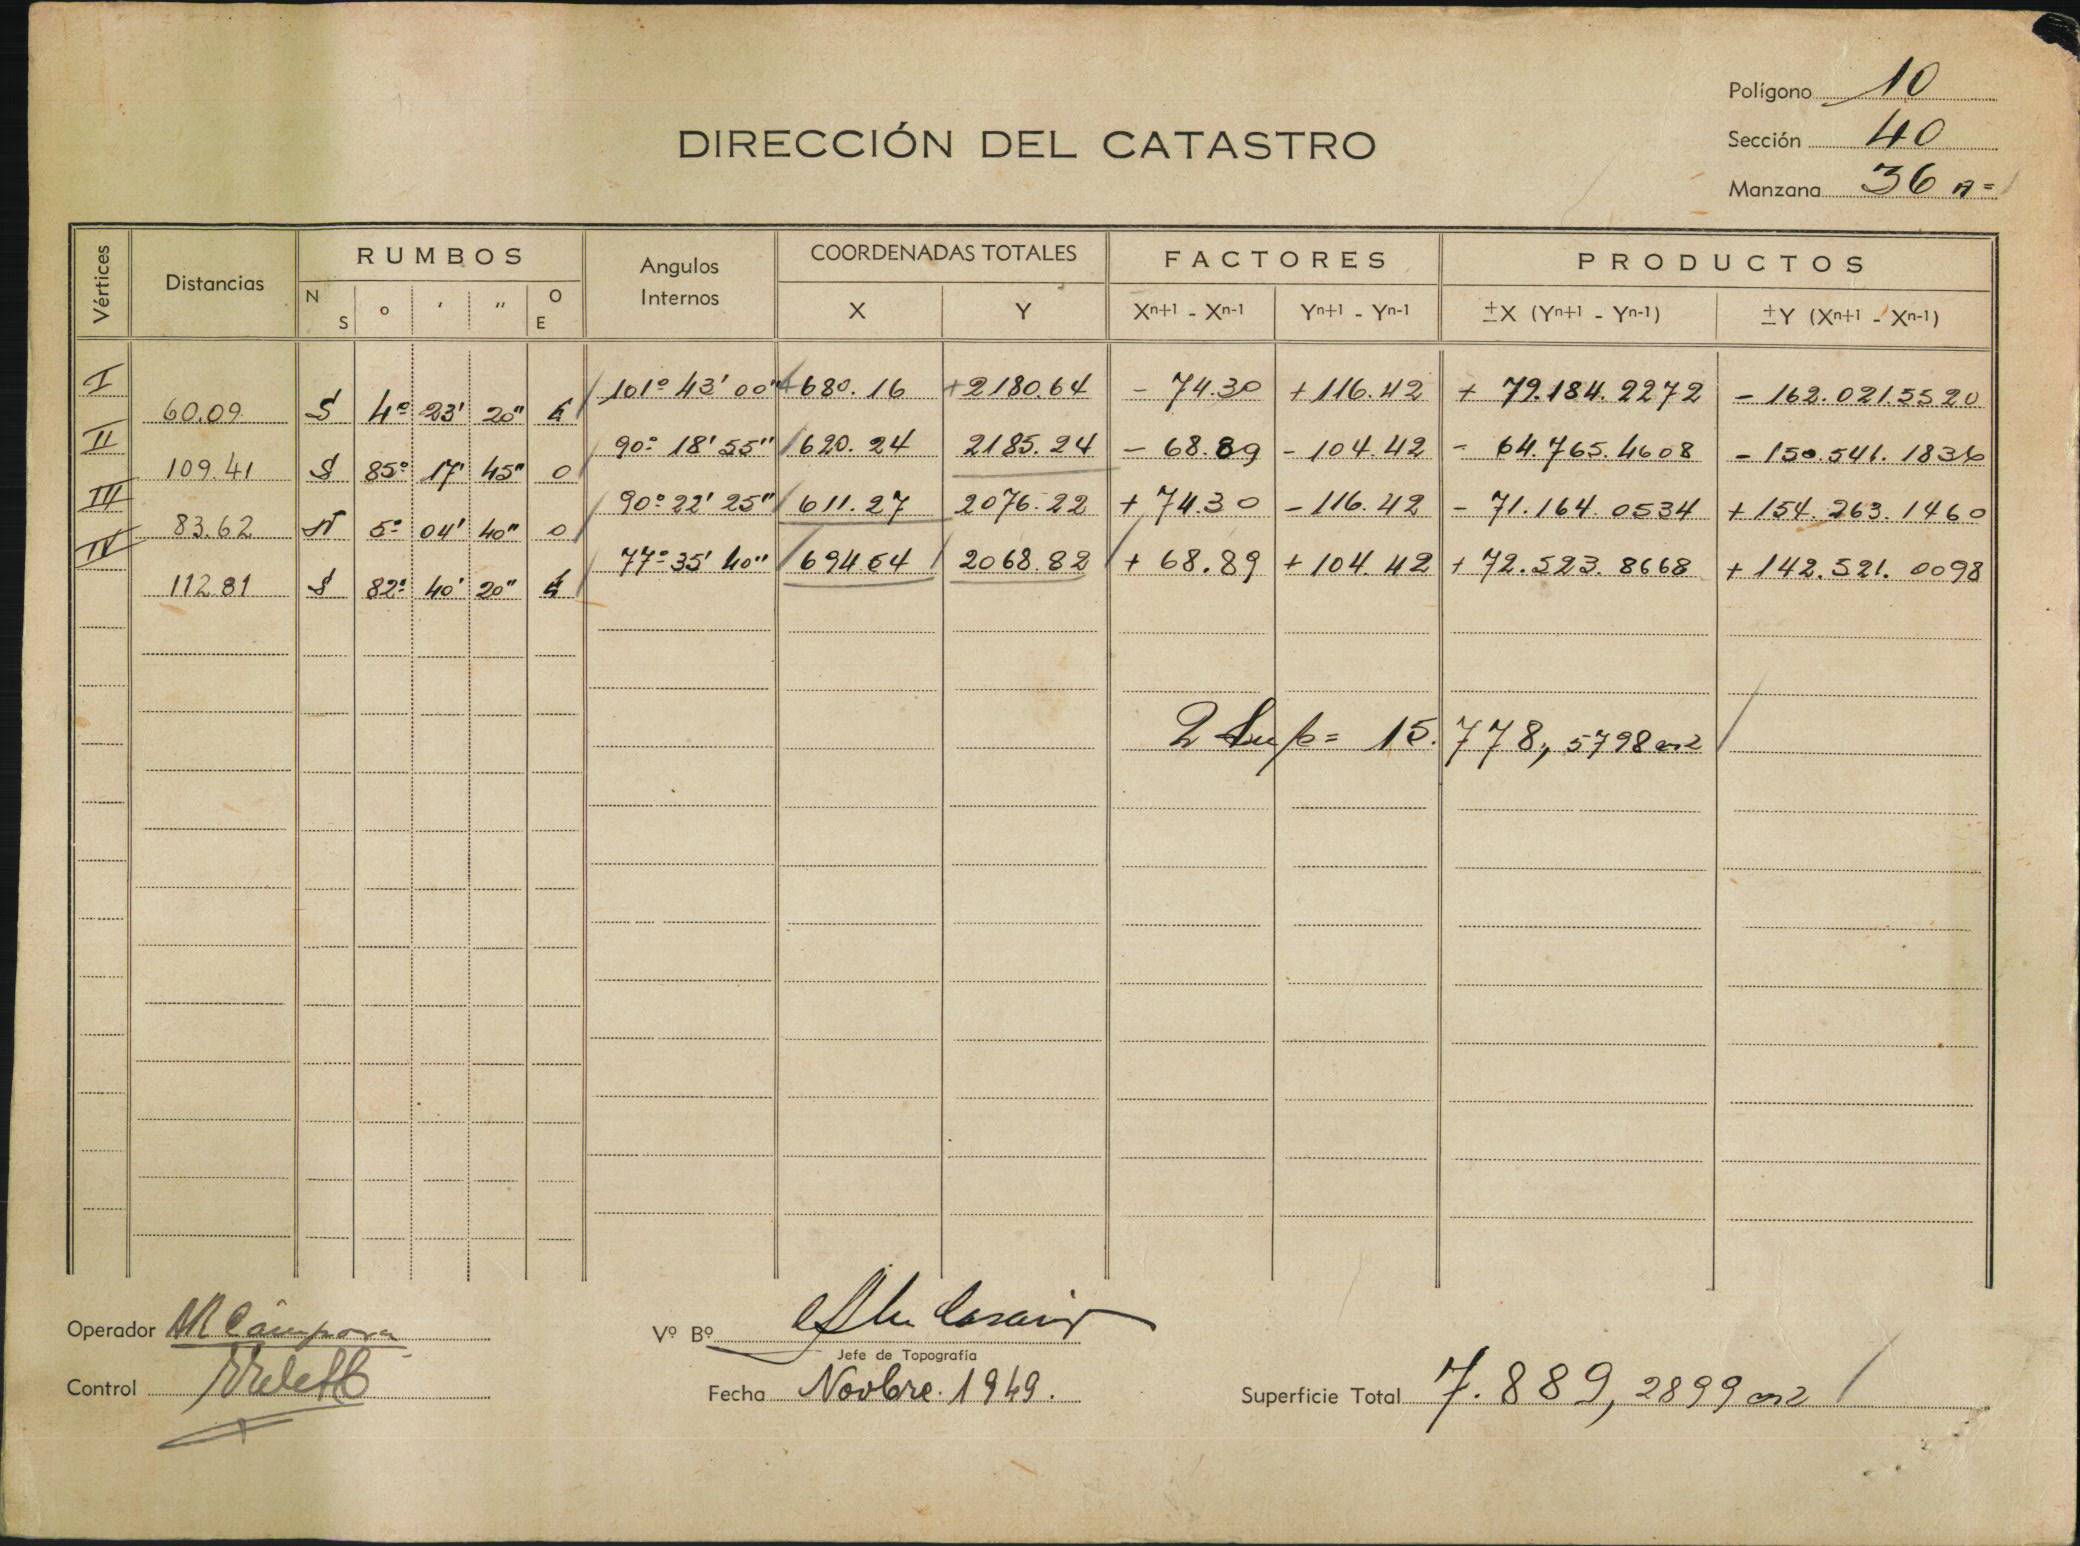 Polígono 10
DIRECCIÓN DEL CATASTRO
Sección 40
Manzana 36 A=
Vértices Distancias RUMBOS Angulos Internos COORDENADAS TOTALES FACTORES PRODUCTOS
N S o ' " O E X Y Xn+1 - Xn-1 Yn+1 - Yn-1 ±X (Yn+1 - Yn-1) ±Y (Xn+1 - Xn-1)
I 101º 43' 00" +680.16 +2180.64 - 74.30 +116.42 + 79.184.2272 - 162.021.5520
60.09 S 4º 23' 20" E
II 90º 18' 55" 620.24 2185.24 - 68.89 -104.42 - 64.765.4608 - 150.541.1836
109.41 S 85º 17' 45" O
III 90º 22' 25" 611.27 2076.22 + 74.30 -116.42 - 71.164.0534 +154.263.1460
83.62 N 5º 04' 40" O
IV 77º 35' 40" 694.54 2068.82 + 68.89 +104.42 + 72.523.8668 +142.521.0098
112.81 S 82º 40' 20" E
2 Sup= 15.778,5798 m2
Operador Cámpora
Vº Bº
Jefe de Topografía
Control
Fecha Novbre. 1949.
Superficie Total 7.889,2899 m2